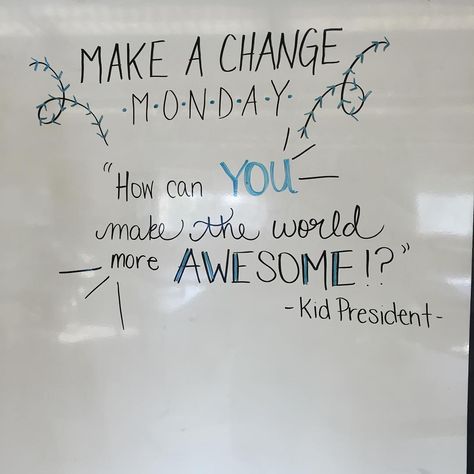 MAKE A CHANGE
·M·O·N·D·A·Y·
"How can YOU
make the world
more AWESOME!?"
-Kid President-